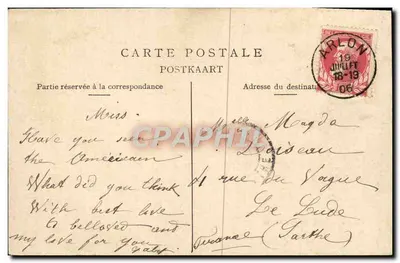 CARTE POSTALE
POSTKAART
Partie réservée à la correspondance
Adresse du destinat
ARLON
19
JUILLET
18-19
06
Miss.
Have you
the American
What did you think
With best love
beloved and
my love for you
Magda
Loiseau
41 rue du Vague
Le Lude
(Sarthe)
CARTE-POSTALE